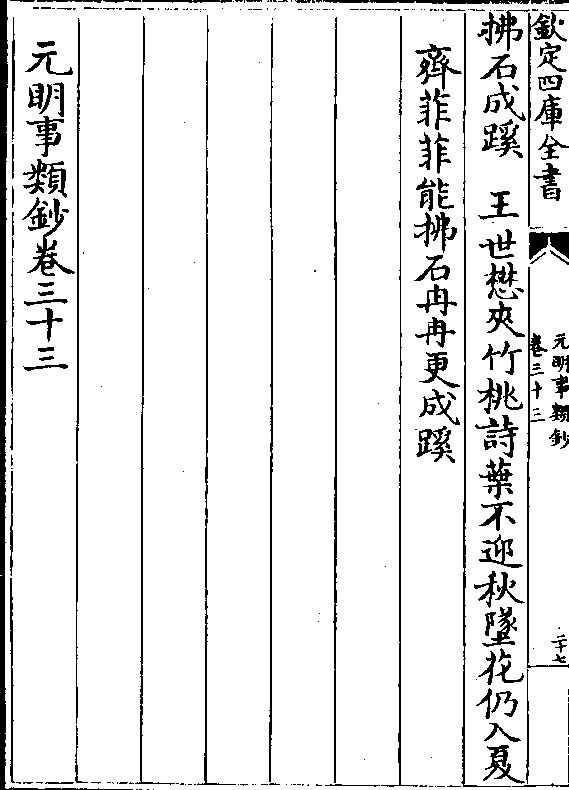 欽定四庫全書
元明事類鈔
卷三十三
二十七
拂石成蹊　王世懋夾竹桃詩葉不迎秋墜花仍入夏
齊菲菲能拂石冉冉更成蹊
元明事類鈔卷三十三